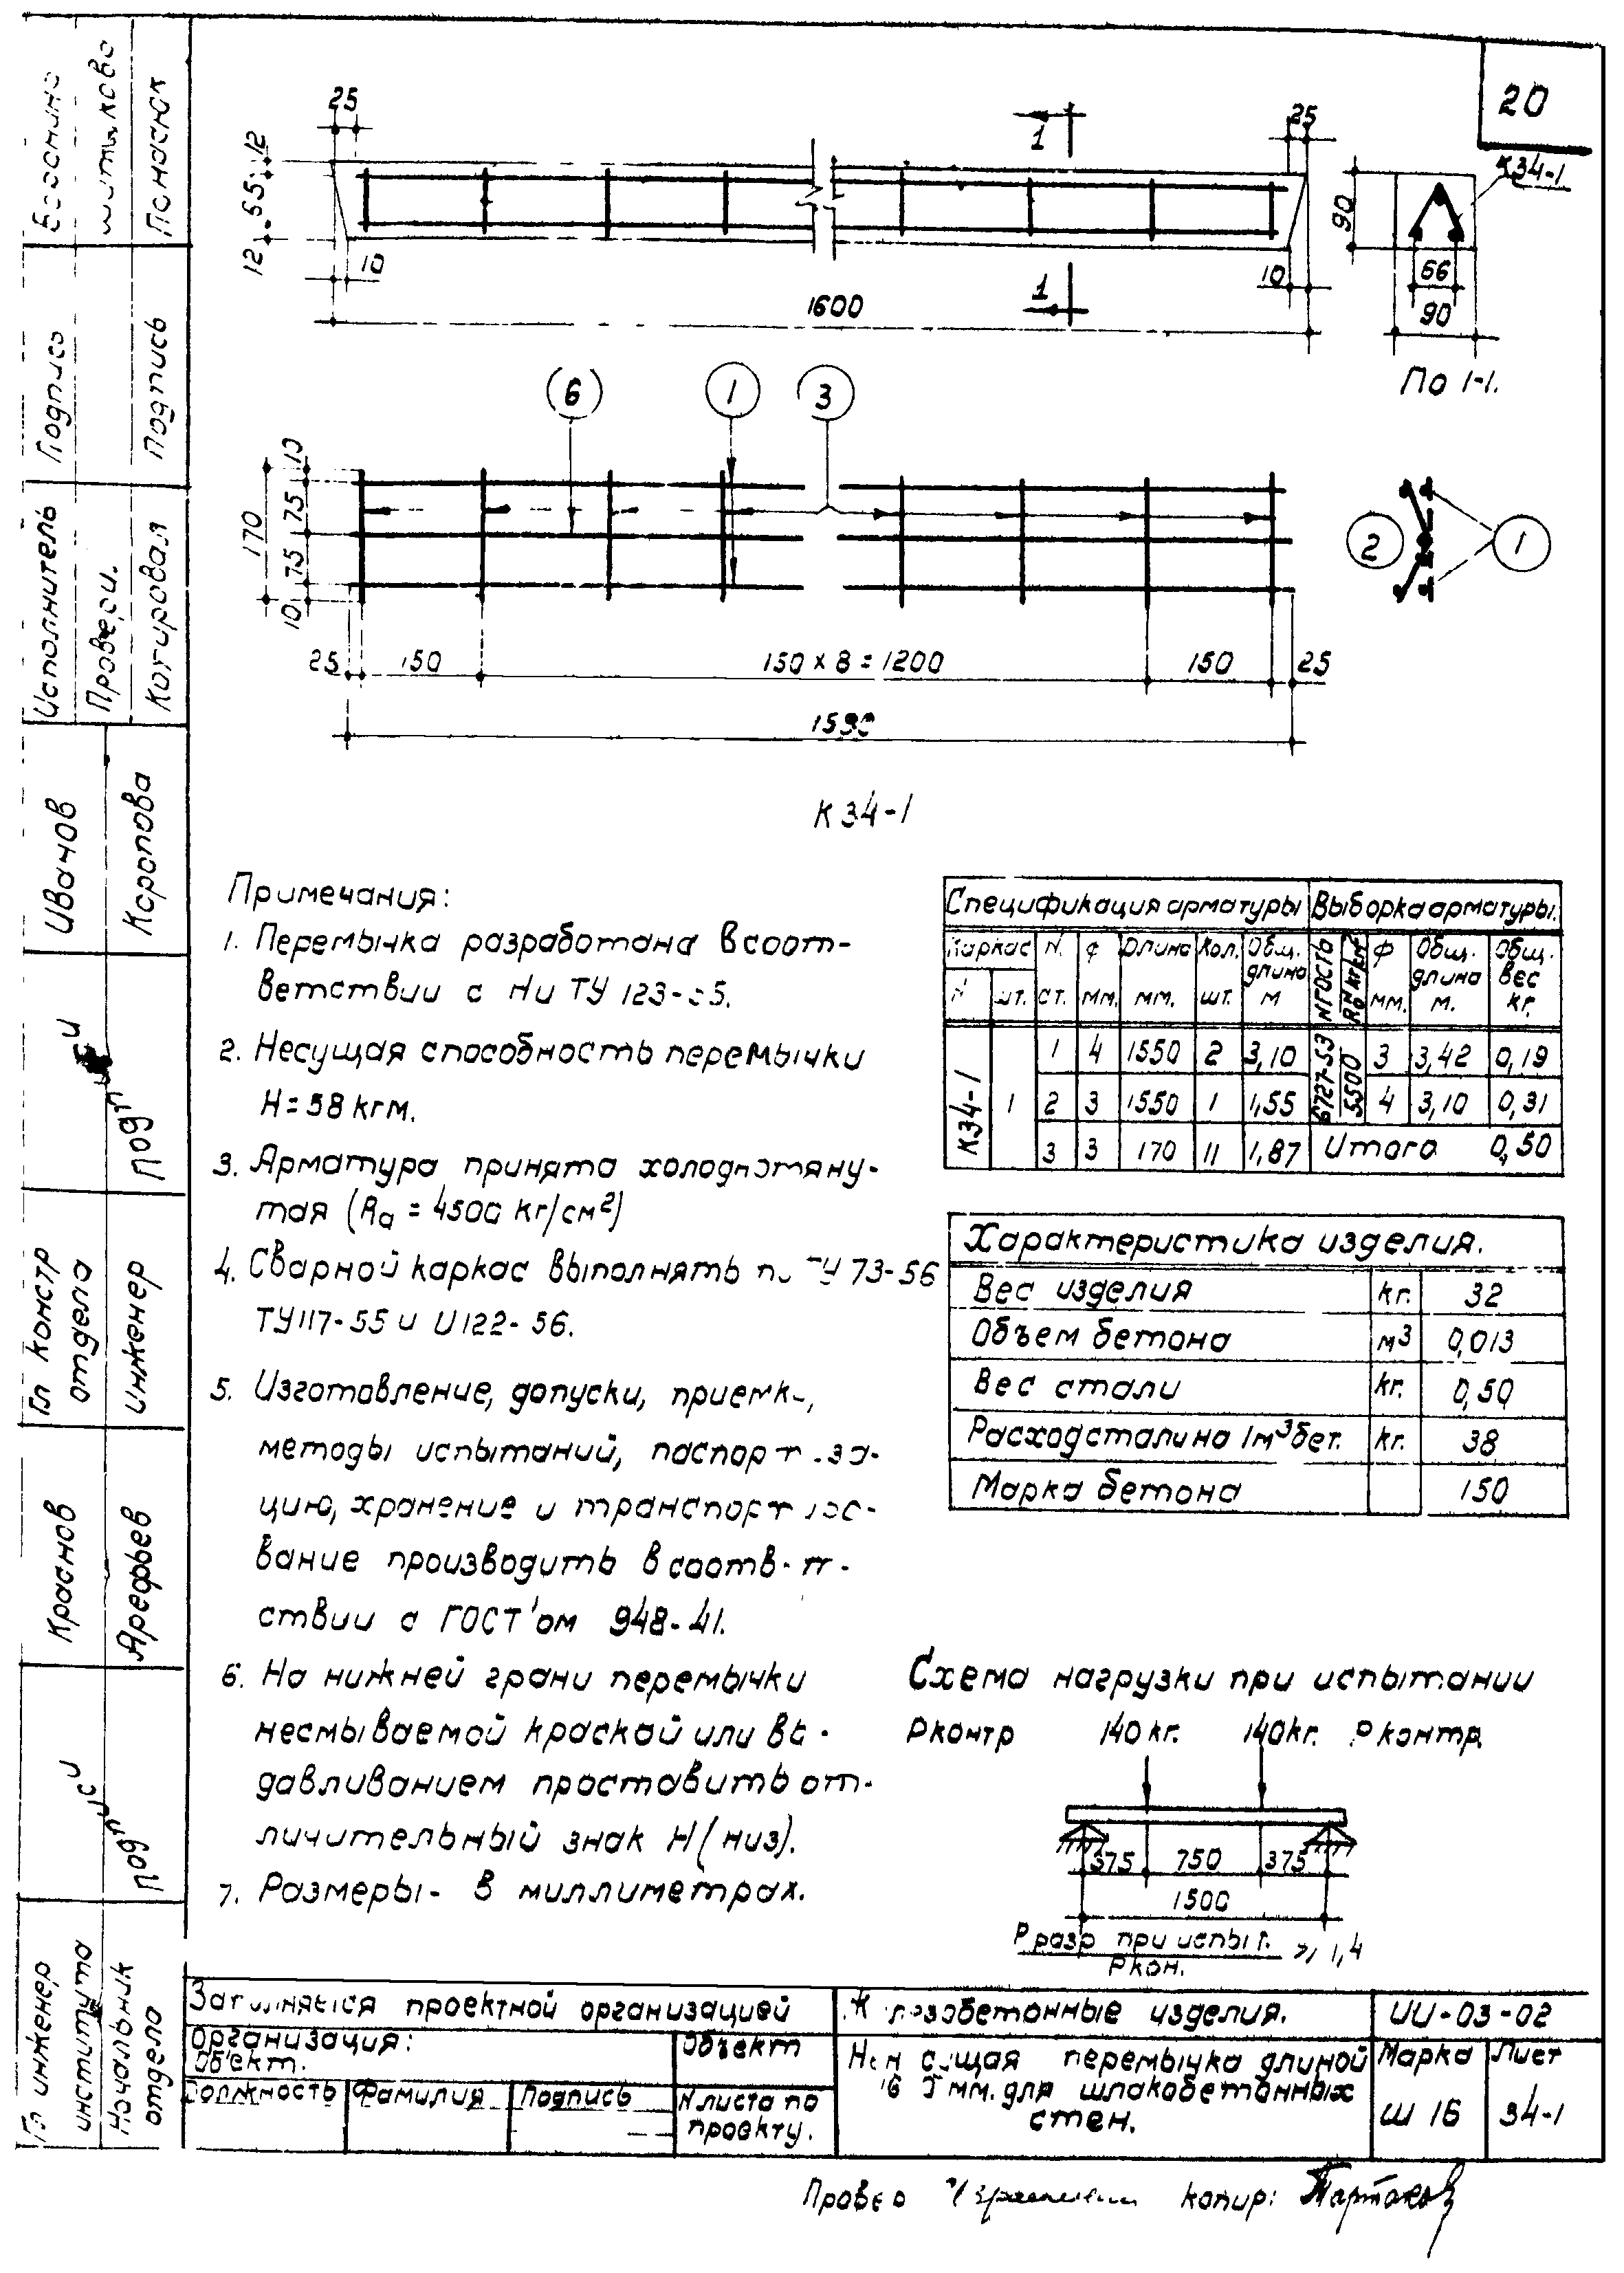 20
25
1
25
К34-1
12
55
12
90
10
1
10
66
1600
90
По 1-1.
6
1
3
10
75
170
75
10
2
1
25
150
150 х 8 = 1200
150
25
К 34-1
Примечания:
1. Перемычка разработана в соот-
ветствии с Ни ТУ
2. Несущая способность перемычки
Н = 58 кгм.
3. Арматура принята холоднотяну-
тая (Rа = 4500 кг/см²)
4. Сварной каркас выполнять ТУ 73-56
ТУ 117-55 и И 122-56.
5. Изготовление, допуски,
методы испытаний,
цию, хранение и
вание производить в
ствии с ГОСТ'ом 948-41.
6. На нижней грани перемычки
несмываемой краской или
давливанием проставить от-
личительный знак Н (низ).
7. Размеры - в миллиметрах.
Спецификация арматуры Выборка арматуры.
Каркас N. ф Длина Кол. Общ. длина N ГОСТ ф Общ. длина Общ. вес
N шт. ст. мм. мм. шт. м мм. м. кг.
К34-1 1 1 4 1550 2 3,10 6727-53 5500 3 3,42 0,19
2 3 1550 1 1,55 4 3,10 0,31
3 3 170 11 1,87 Итого 0,50
Характеристика изделия.
Вес изделия кг. 32
Объем бетона м³ 0,013
Вес стали кг. 0,50
Расход стали на 1м³ бет. кг. 38
Марка бетона 150
Схема нагрузки при испытании
Рконтр 140 кг. 140 кг. Р контр.
375 750 375
1500
Р разр при испыт. ⩾ 1,4
Ркон.
проектной организацией
изделия.
ИИ-03-02
Организация:
Объект.
Объект
Должность Фамилия Подпись
N листа по
проекту.
перемычка длиной
мм. для шлакобетонных
стен.
Марка Лист
Ш 16 34-1
копир:
Подпись
Подпись
Исполнитель
Провери.
Копировал
Иванов
Коропова
Подписи
Гл констр
отдела
инженер
Краснов
Арефьев
Подписи
Гл инженер
института
Начальник
отдела